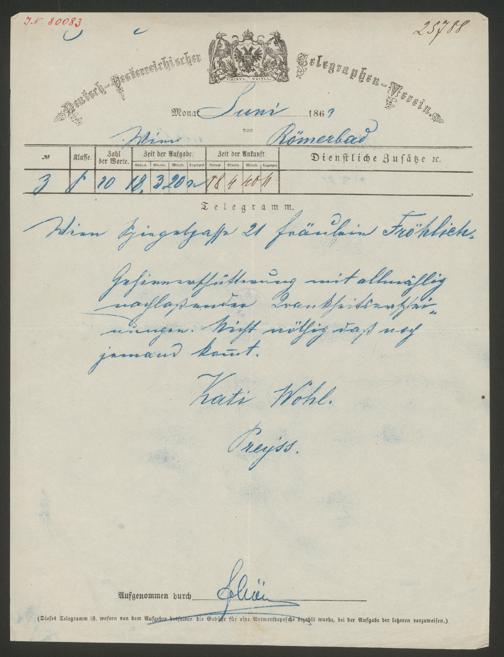 I.N. 80083
25788
Deutsch-Oesterreichischer Telegraphen-Verein.
Monat Juni 1869
Wien von Römerbad
№ Klasse. Zahl der Worte. Zeit der Aufgabe. Zeit der Ankunft. Dienstliche Zusätze ꝛc.
3 20 18 3 20 18 4 40
Telegramm.
Wien Spiegelgasse 21 Fräulein Fröhlich.
Gehirnerschütterung mit allmählig
nachlaßender Krankheitserschei-
nungen. Nicht nöthig daß noch
jemand komt.
Kati Wohl.
Preyss.
Aufgenommen durch
(Dieses Telegramm ist, wofern von dem Aufgeber desselben die Gebühr für eine Antwortdepesche bezahlt wurde, bei der Aufgabe der letzteren vorzuweisen.)